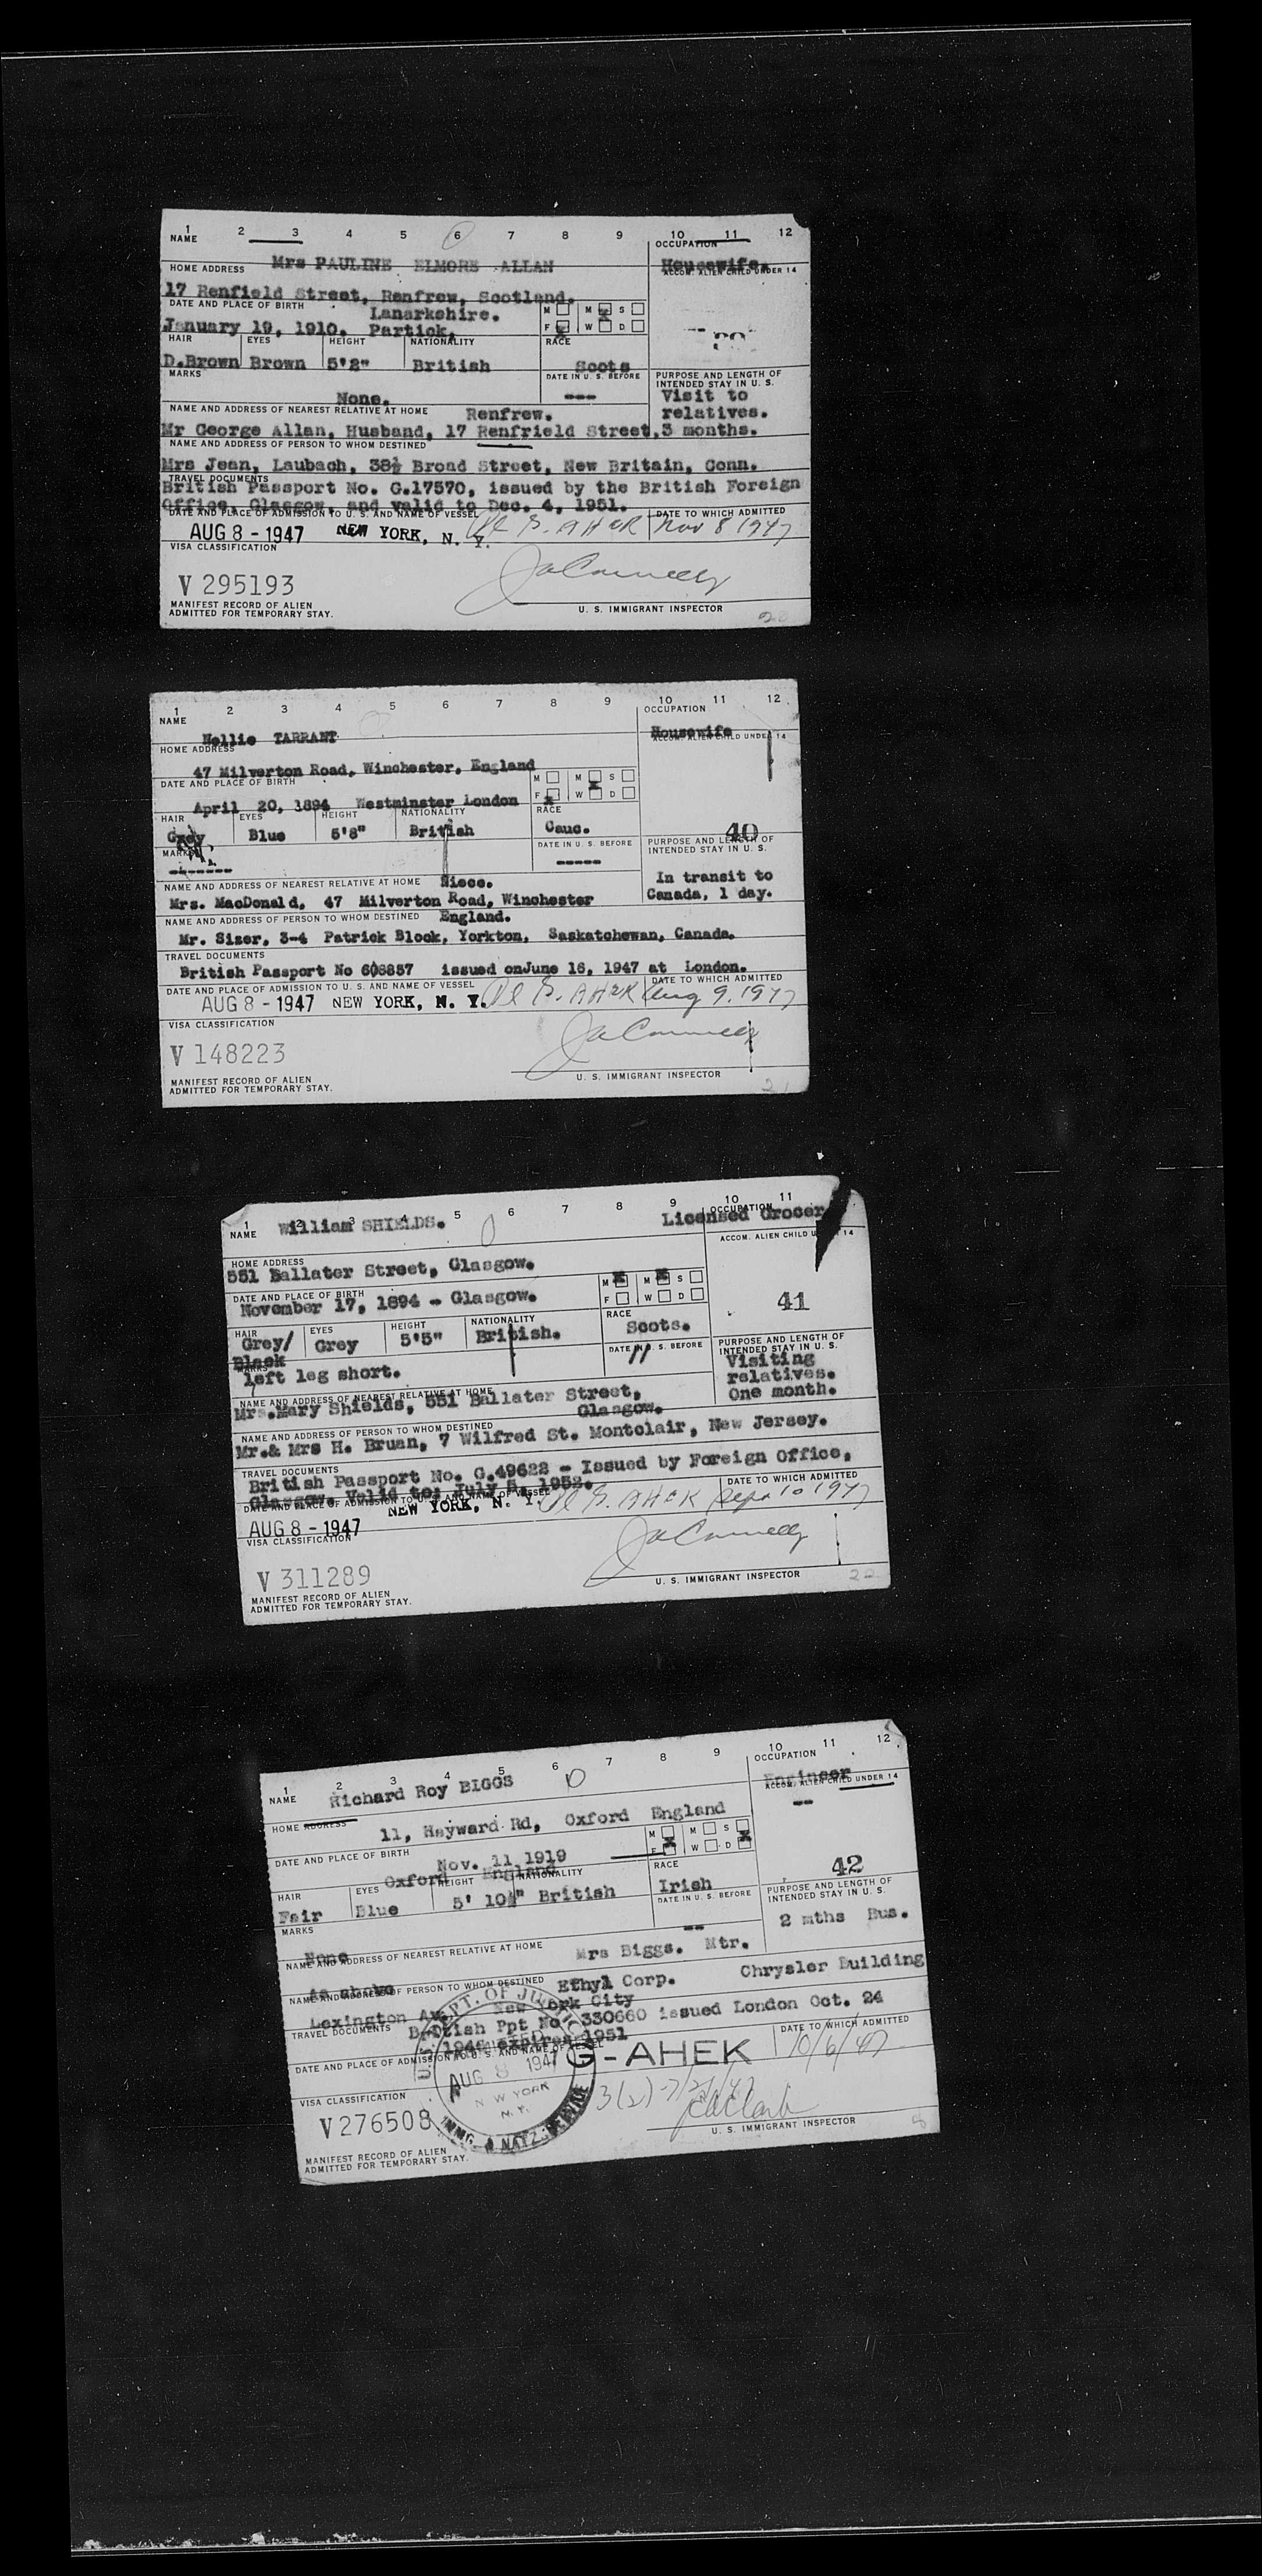 1 2 3 4 5 6 7 8 9 10 11 12
NAME OCCUPATION
Mrs PAULINE ELMORE ALLAN Housewife.
HOME ADDRESS ACCOM. ALIEN CHILD UNDER 14
17 Renfield Street, Renfrew, Scotland.
DATE AND PLACE OF BIRTH Lanarkshire. M M S
January 19, 1910. Partick. F W D
HAIR EYES HEIGHT NATIONALITY RACE
D.Brown Brown 5'2" British Scots
MARKS DATE IN U. S. BEFORE PURPOSE AND LENGTH OF INTENDED STAY IN U. S.
None. --- Visit to
NAME AND ADDRESS OF NEAREST RELATIVE AT HOME Renfrew. relatives.
Mr George Allan, Husband, 17 Renfrield Street, 3 months.
NAME AND ADDRESS OF PERSON TO WHOM DESTINED
Mrs Jean, Laubach, 38½ Broad Street, New Britain, Conn.
TRAVEL DOCUMENTS
British Passport No. G.17570, issued by the British Foreign
Office, Glasgow, and valid to Dec. 4, 1951.
DATE AND PLACE OF ADMISSION TO U. S. AND NAME OF VESSEL DATE TO WHICH ADMITTED
AUG 8 - 1947 NEW YORK, N. Y. G. AHEK Nov 8 1947
VISA CLASSIFICATION
V 295193
MANIFEST RECORD OF ALIEN
ADMITTED FOR TEMPORARY STAY. U. S. IMMIGRANT INSPECTOR
1 2 3 4 5 6 7 8 9 10 11 12
NAME OCCUPATION
Nellie TARRANT Housewife
HOME ADDRESS ACCOM. ALIEN CHILD UNDER 14
47 Milverton Road, Winchester, England
DATE AND PLACE OF BIRTH M M S
April 20, 1894 Westminster London F W D
HAIR EYES HEIGHT NATIONALITY RACE
Grey Blue 5'8" British Cauc. 40
MARKS DATE IN U. S. BEFORE PURPOSE AND LENGTH OF INTENDED STAY IN U. S.
------- -----
NAME AND ADDRESS OF NEAREST RELATIVE AT HOME Niece. In transit to
Mrs. MacDonald, 47 Milverton Road, Winchester Canada, 1 day.
NAME AND ADDRESS OF PERSON TO WHOM DESTINED England.
Mr. Sizer, 3-4 Patrick Block, Yorkton, Saskatchewan, Canada.
TRAVEL DOCUMENTS
British Passport No 608857 issued onJune 16, 1947 at London.
DATE AND PLACE OF ADMISSION TO U. S. AND NAME OF VESSEL DATE TO WHICH ADMITTED
AUG 8 - 1947 NEW YORK, N. Y. G. AHEK Aug 9, 1947
VISA CLASSIFICATION
V 148223
MANIFEST RECORD OF ALIEN
ADMITTED FOR TEMPORARY STAY. U. S. IMMIGRANT INSPECTOR
21
1 2 3 4 5 6 7 8 9 10 11
NAME William SHIELDS. OCCUPATION Licensed Grocer
HOME ADDRESS ACCOM. ALIEN CHILD UNDER 14
551 Ballater Street, Glasgow.
DATE AND PLACE OF BIRTH M M S
November 17, 1894 - Glasgow. F W D 41
HAIR EYES HEIGHT NATIONALITY RACE
Grey/ Grey 5'5" British. Scots.
Black DATE IN U. S. BEFORE PURPOSE AND LENGTH OF INTENDED STAY IN U. S.
MARKS // Visiting
left leg short. relatives.
NAME AND ADDRESS OF NEAREST RELATIVE AT HOME One month.
Mrs.Mary Shields, 551 Ballater Street,
Glasgow.
NAME AND ADDRESS OF PERSON TO WHOM DESTINED
Mr.& Mrs H. Bruan, 7 Wilfred St. Montclair, New Jersey.
TRAVEL DOCUMENTS
British Passport No. G.49622 - Issued by Foreign Office,
Glasgow. Valid to: July 5, 1952.
DATE AND PLACE OF ADMISSION TO U. S. AND NAME OF VESSEL DATE TO WHICH ADMITTED
AUG 8 - 1947 NEW YORK, N. Y. G. AHEK Sept 10 1947
VISA CLASSIFICATION
V 311289
MANIFEST RECORD OF ALIEN
ADMITTED FOR TEMPORARY STAY. U. S. IMMIGRANT INSPECTOR
22
1 2 3 4 5 6 7 8 9 10 11 12
NAME Richard Roy BIGGS OCCUPATION
Engineer
HOME ADDRESS ACCOM. ALIEN CHILD UNDER 14
11, Hayward Rd, Oxford England --
DATE AND PLACE OF BIRTH Nov. 11 1919 M M S
Oxford England F W D
HAIR EYES HEIGHT NATIONALITY RACE 42
Fair Blue 5' 10½" British Irish
MARKS DATE IN U. S. BEFORE PURPOSE AND LENGTH OF INTENDED STAY IN U. S.
None -- 2 mths Bus.
NAME AND ADDRESS OF NEAREST RELATIVE AT HOME Mrs Biggs. Mtr.
As above
NAME AND ADDRESS OF PERSON TO WHOM DESTINED Ethyl Corp. Chrysler Building
Lexington Av. New York City
TRAVEL DOCUMENTS British Ppt No. 330660 issued London Oct. 24
1946 expires 1951
DATE AND PLACE OF ADMISSION TO U. S. AND NAME OF VESSEL DATE TO WHICH ADMITTED
U.S. DEPT. OF JUSTICE
AUG 8 1947 G-AHEK 10/6/47
NEW YORK
N.Y.
IMMG. & NATZ. SERVICE
VISA CLASSIFICATION 3(2)
V276508
MANIFEST RECORD OF ALIEN
ADMITTED FOR TEMPORARY STAY. U. S. IMMIGRANT INSPECTOR